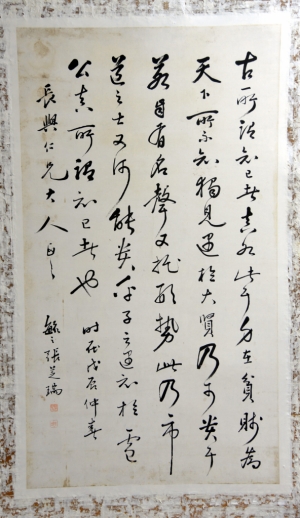 古所謂知己者正如此耳身在貧賤為
天下所不知獨見遇於大賢乃可貴耳
若自有名聲又托形勢此乃市
道之事又何能貴乎子之遇知於盧
公真所謂知己者也 時在戊辰仲春
長興仁兄大人正之
張芝瑞